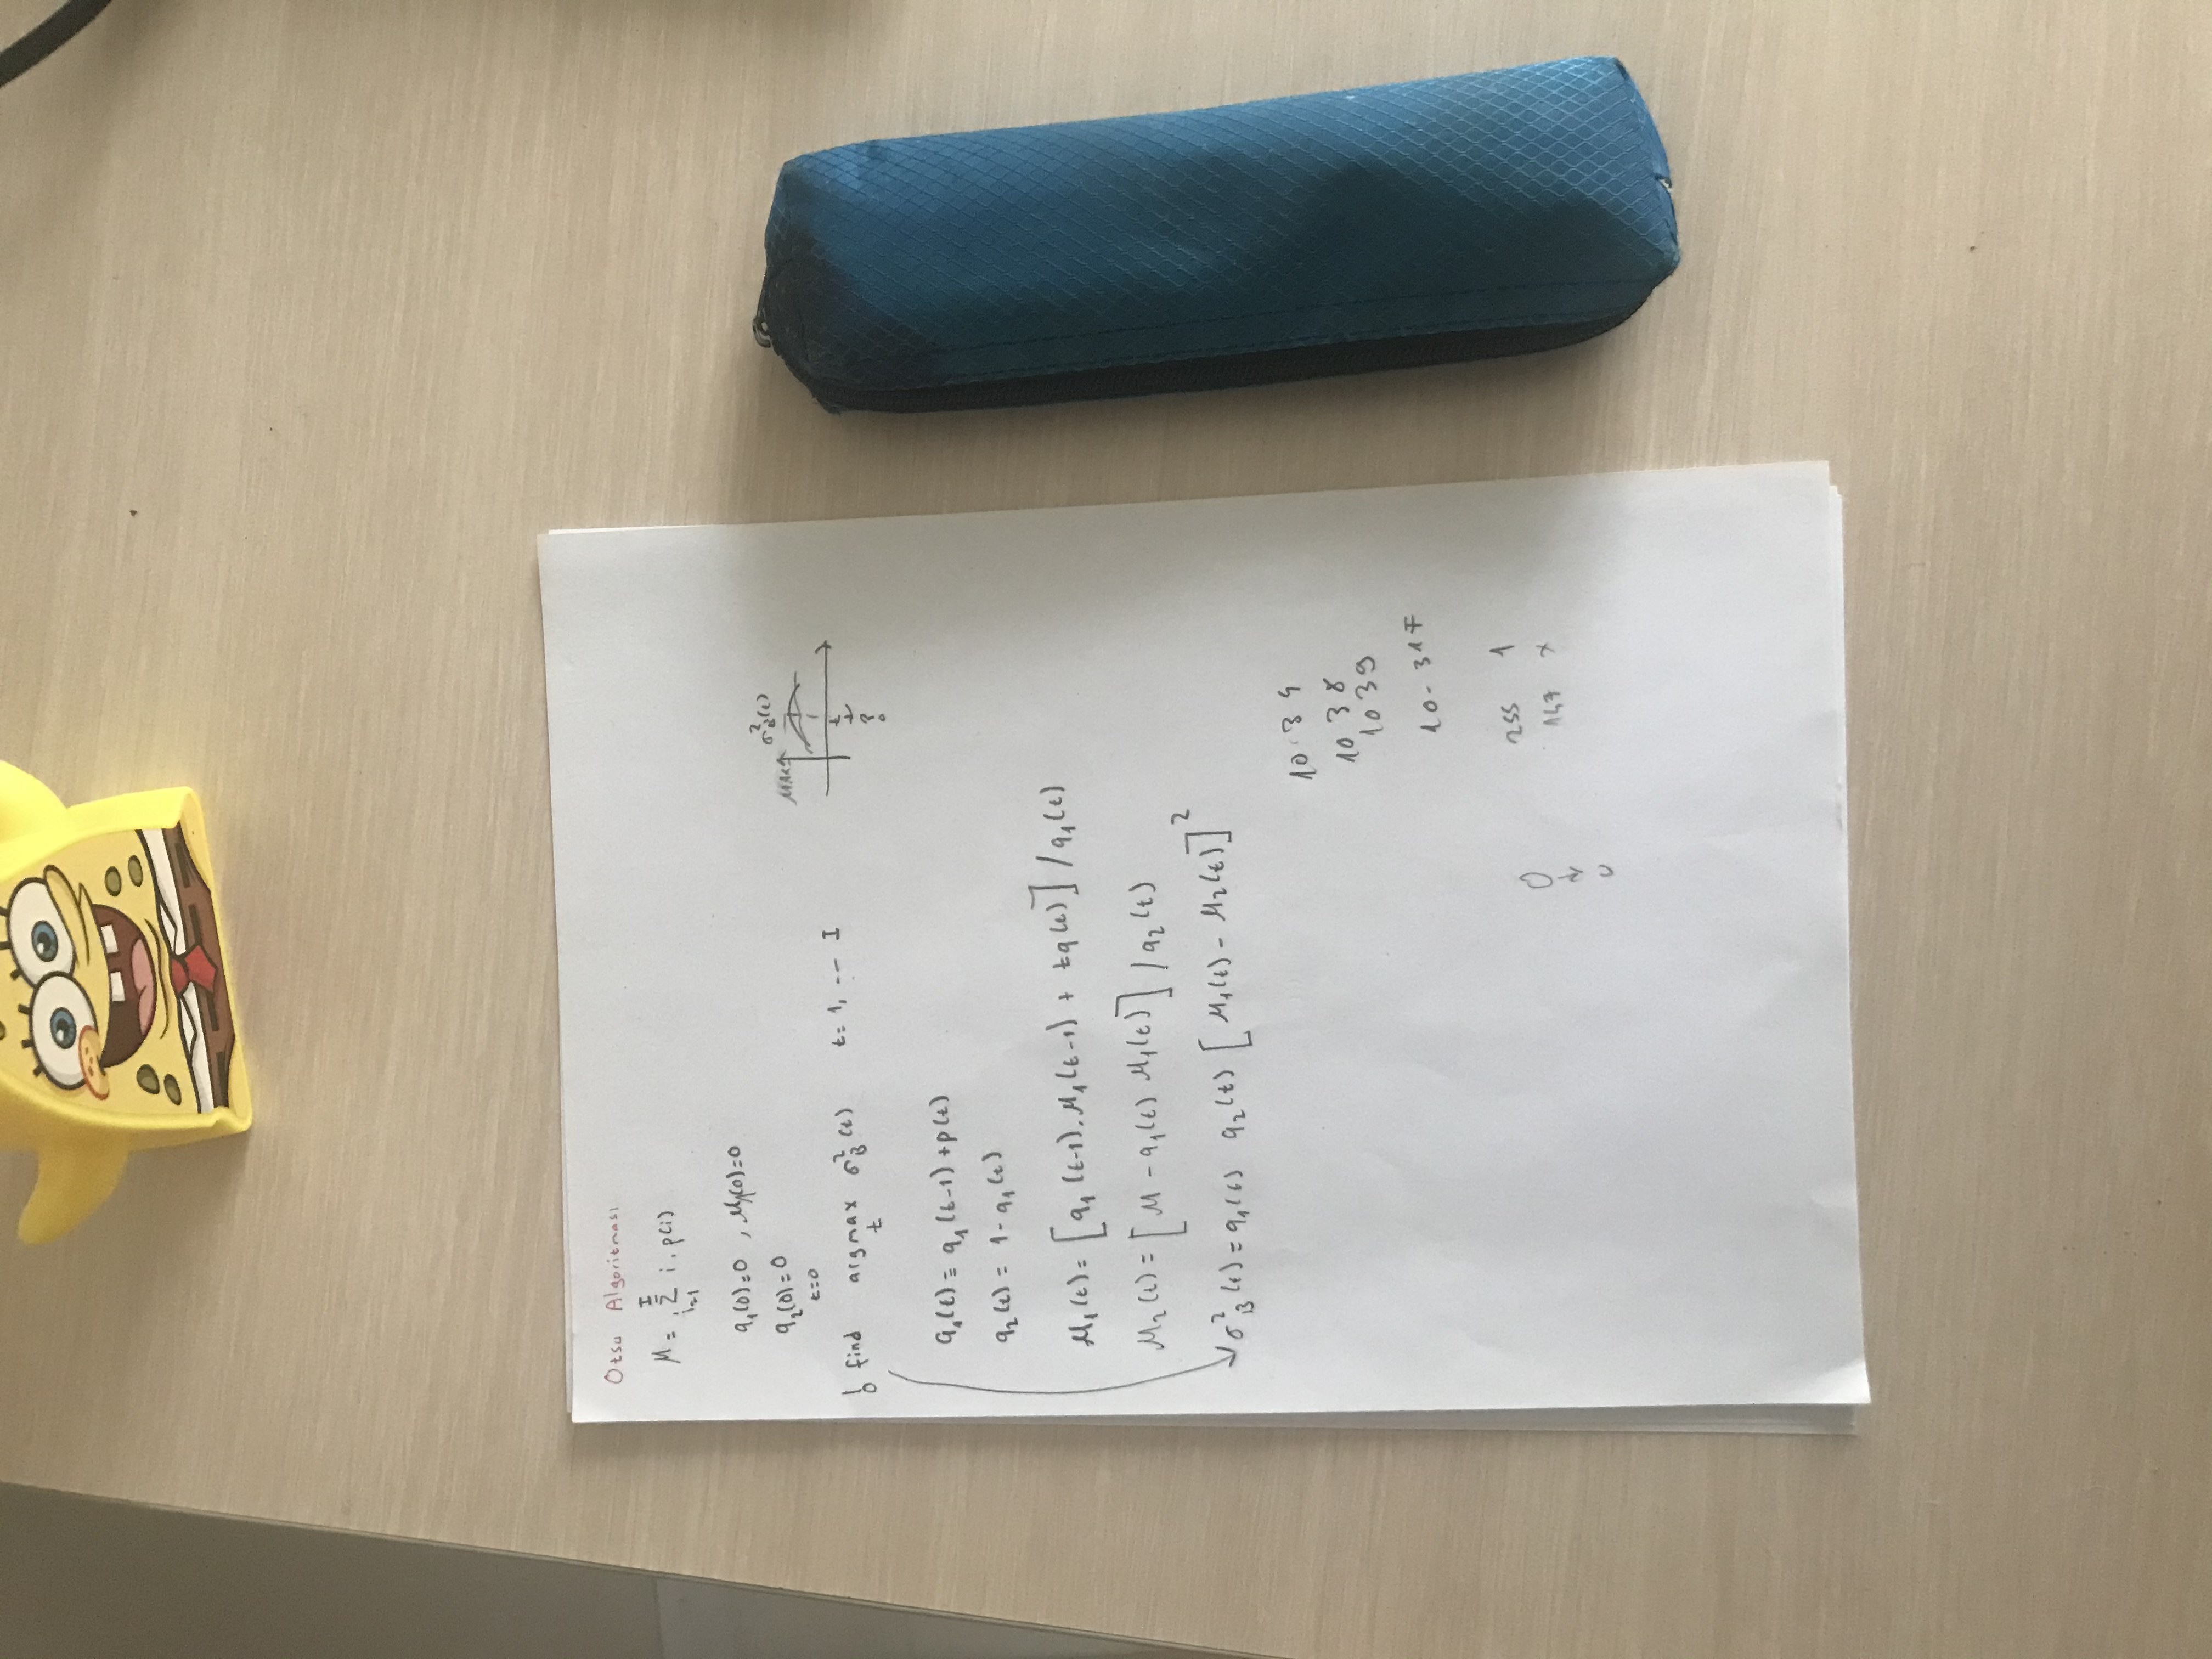 Otsu Algoritması
M = Σ i=1 I i . p(i)
q₁(0)=0 , M₁(0)=0
q₂(0)=0
t=0
! find argmax t σ²B(t) t = 1, --- I
MAX σ²B(t)
t
?
q₁(t) = q₁(t-1) + p(t)
q₂(t) = 1 - q₁(t)
M₁(t) = [q₁(t-1) . M₁(t-1) + tq(t)] / q₁(t)
M₂(t) = [M - q₁(t) M₁(t)] / q₂(t)
σ²B(t) = q₁(t) q₂(t) [M₁(t) - M₂(t)]²
10 38
1039
10- 317
255 1
147 x